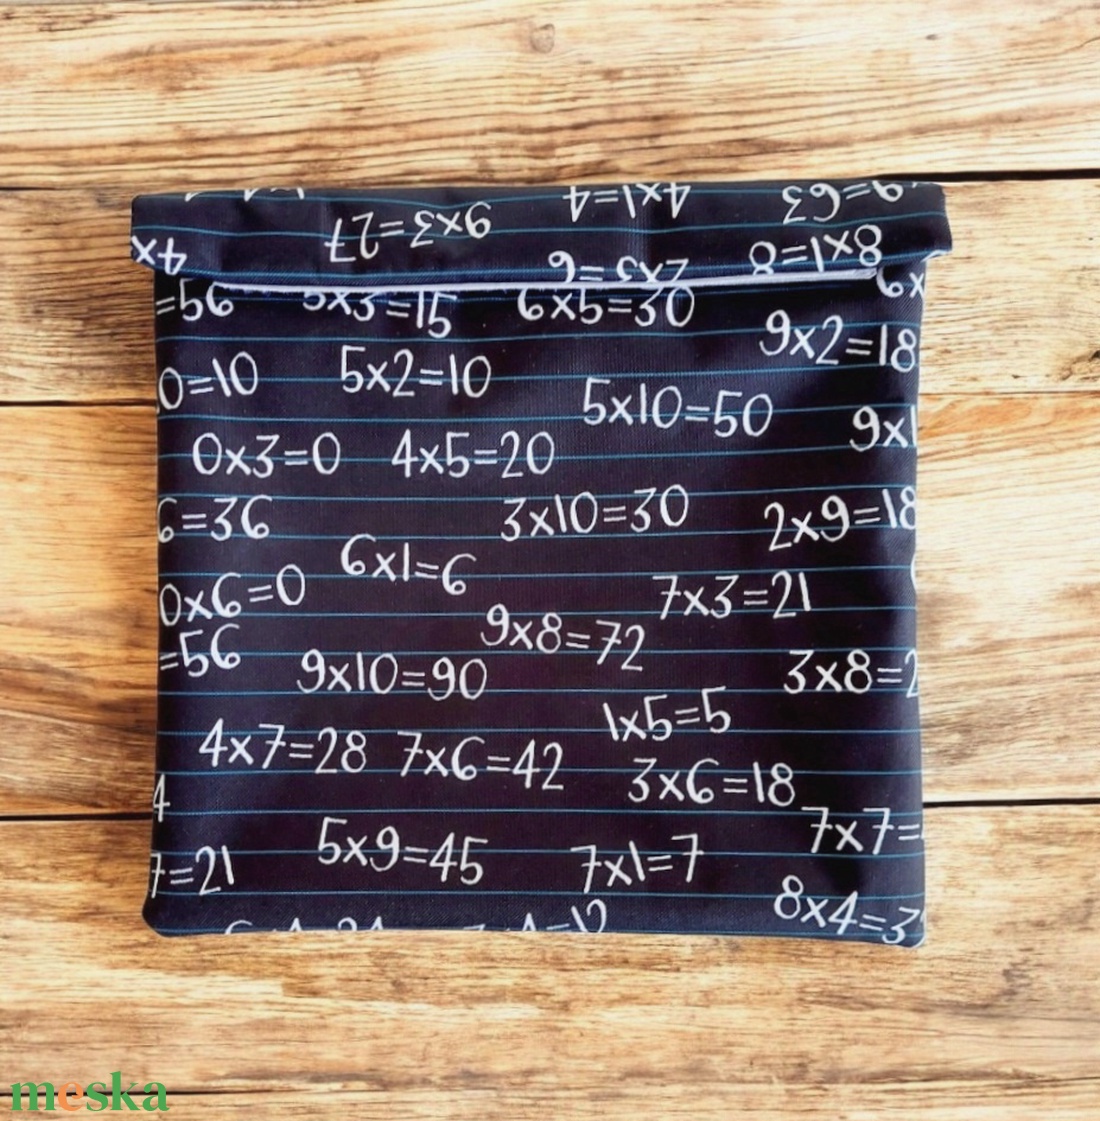 9=63
4x1=4
9x3=27
8x1=8
4x
2x3=6
6x
=56 5x3=15 6x5=30
9x2=18
0=10 5x2=10
5x10=50
9x1
0x3=0 4x5=20
6=36 3x10=30 2x9=18
6x1=6
0x6=0 7x3=21
9x8=72
=56 9x10=90 3x8=2
1x5=5
4x7=28 7x6=42
3x6=18
4
7x7=
5x9=45
7=21 7x1=7
8x4=3
meska